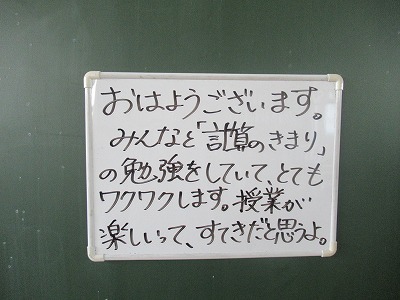 おはようございます。
みんなと「計算のきまり」
の勉強をしていて、とても
ワクワクします。授業が
楽しいって、すてきだと思うよ。